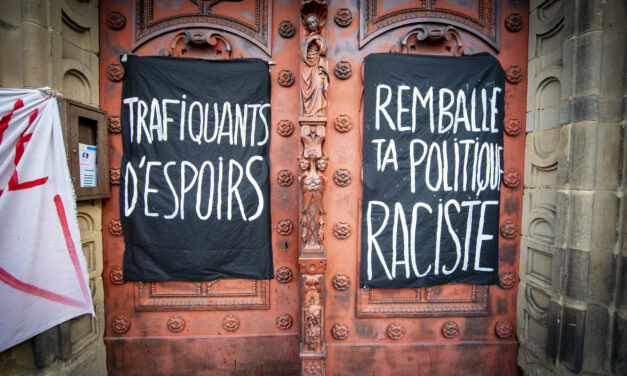 TRAFIQUANTS
D'ESPOIRS
REMBALLE
TA POLITIQUE
RACISTE